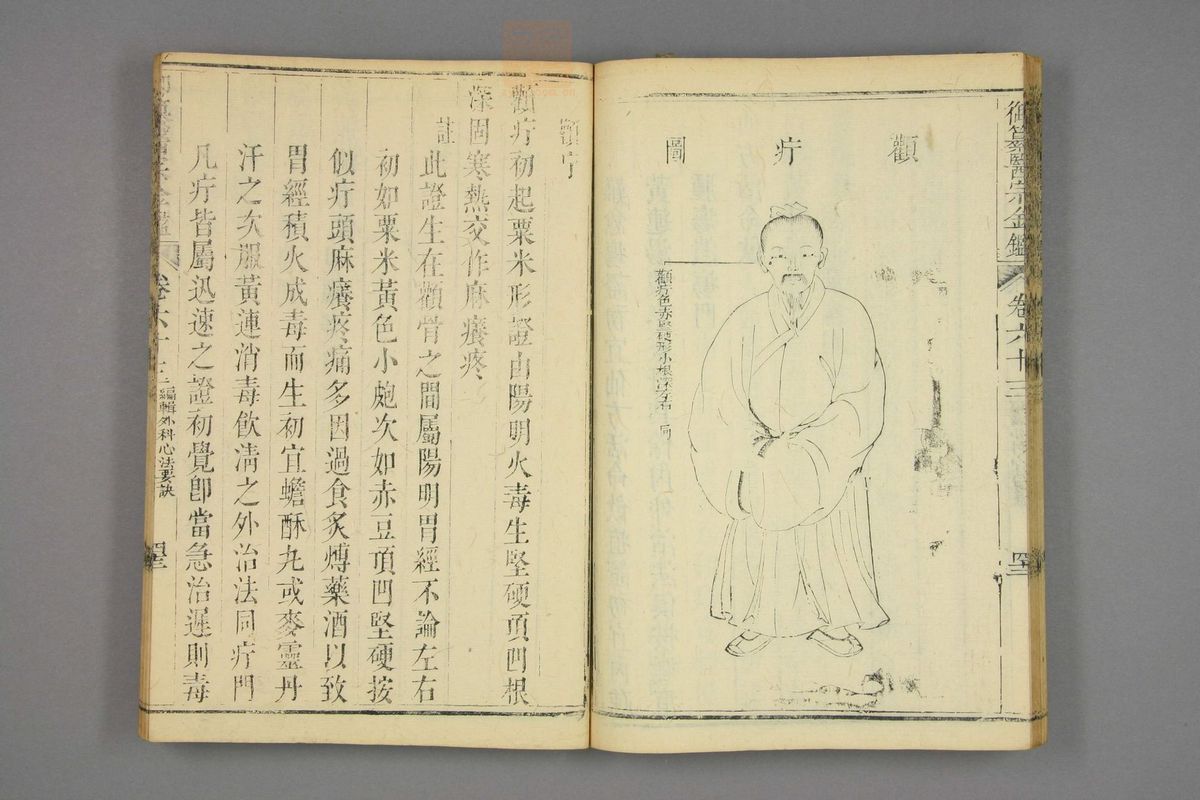 御纂醫宗金鑑
卷六十三
顴疔圖
顴疔色赤堅硬形小根深左右同
顴疔
顴疔初起粟米形證由陽明火毒生堅硬頂凹根
深固寒熱交作麻癢疼
註
此證生在顴骨之間屬陽明胃經不論左右
初如粟米黃色小皰次如赤豆頂凹堅硬按
似疔頭麻癢疼痛多因過食炙煿藥酒以致
胃經積火成毒而生初宜蟾酥丸或麥靈丹
汗之次服黃連消毒飲清之外治法同疔門
凡疔皆屬迅速之證初覺卽當急治遲則毒
卷六十三
編輯外科心法要訣